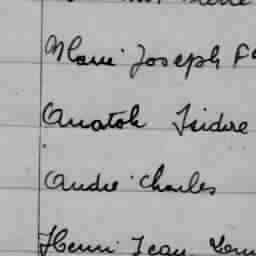 Marie Joseph
Anatole Isidore
André Charles
Henri Jean